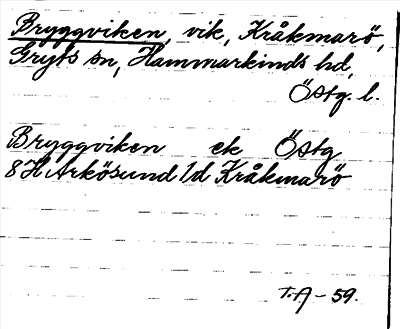 Bryggviken, vik, Kråkmarö,
Gryts sn, Hammarkinds hd,
Östg. l.
Bryggviken ek Östg
8H Arkösund 1d Kråkmarö
T.A - 59.